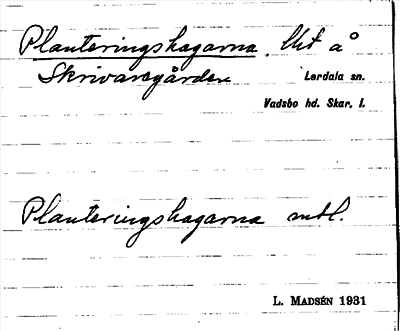 Planteringshagarna. Urt å
Skrivaregården Lerdala sn.
Vadsbo hd. Skar. l.
Planteringshagarna mtl.
L. MADSÉN 1931